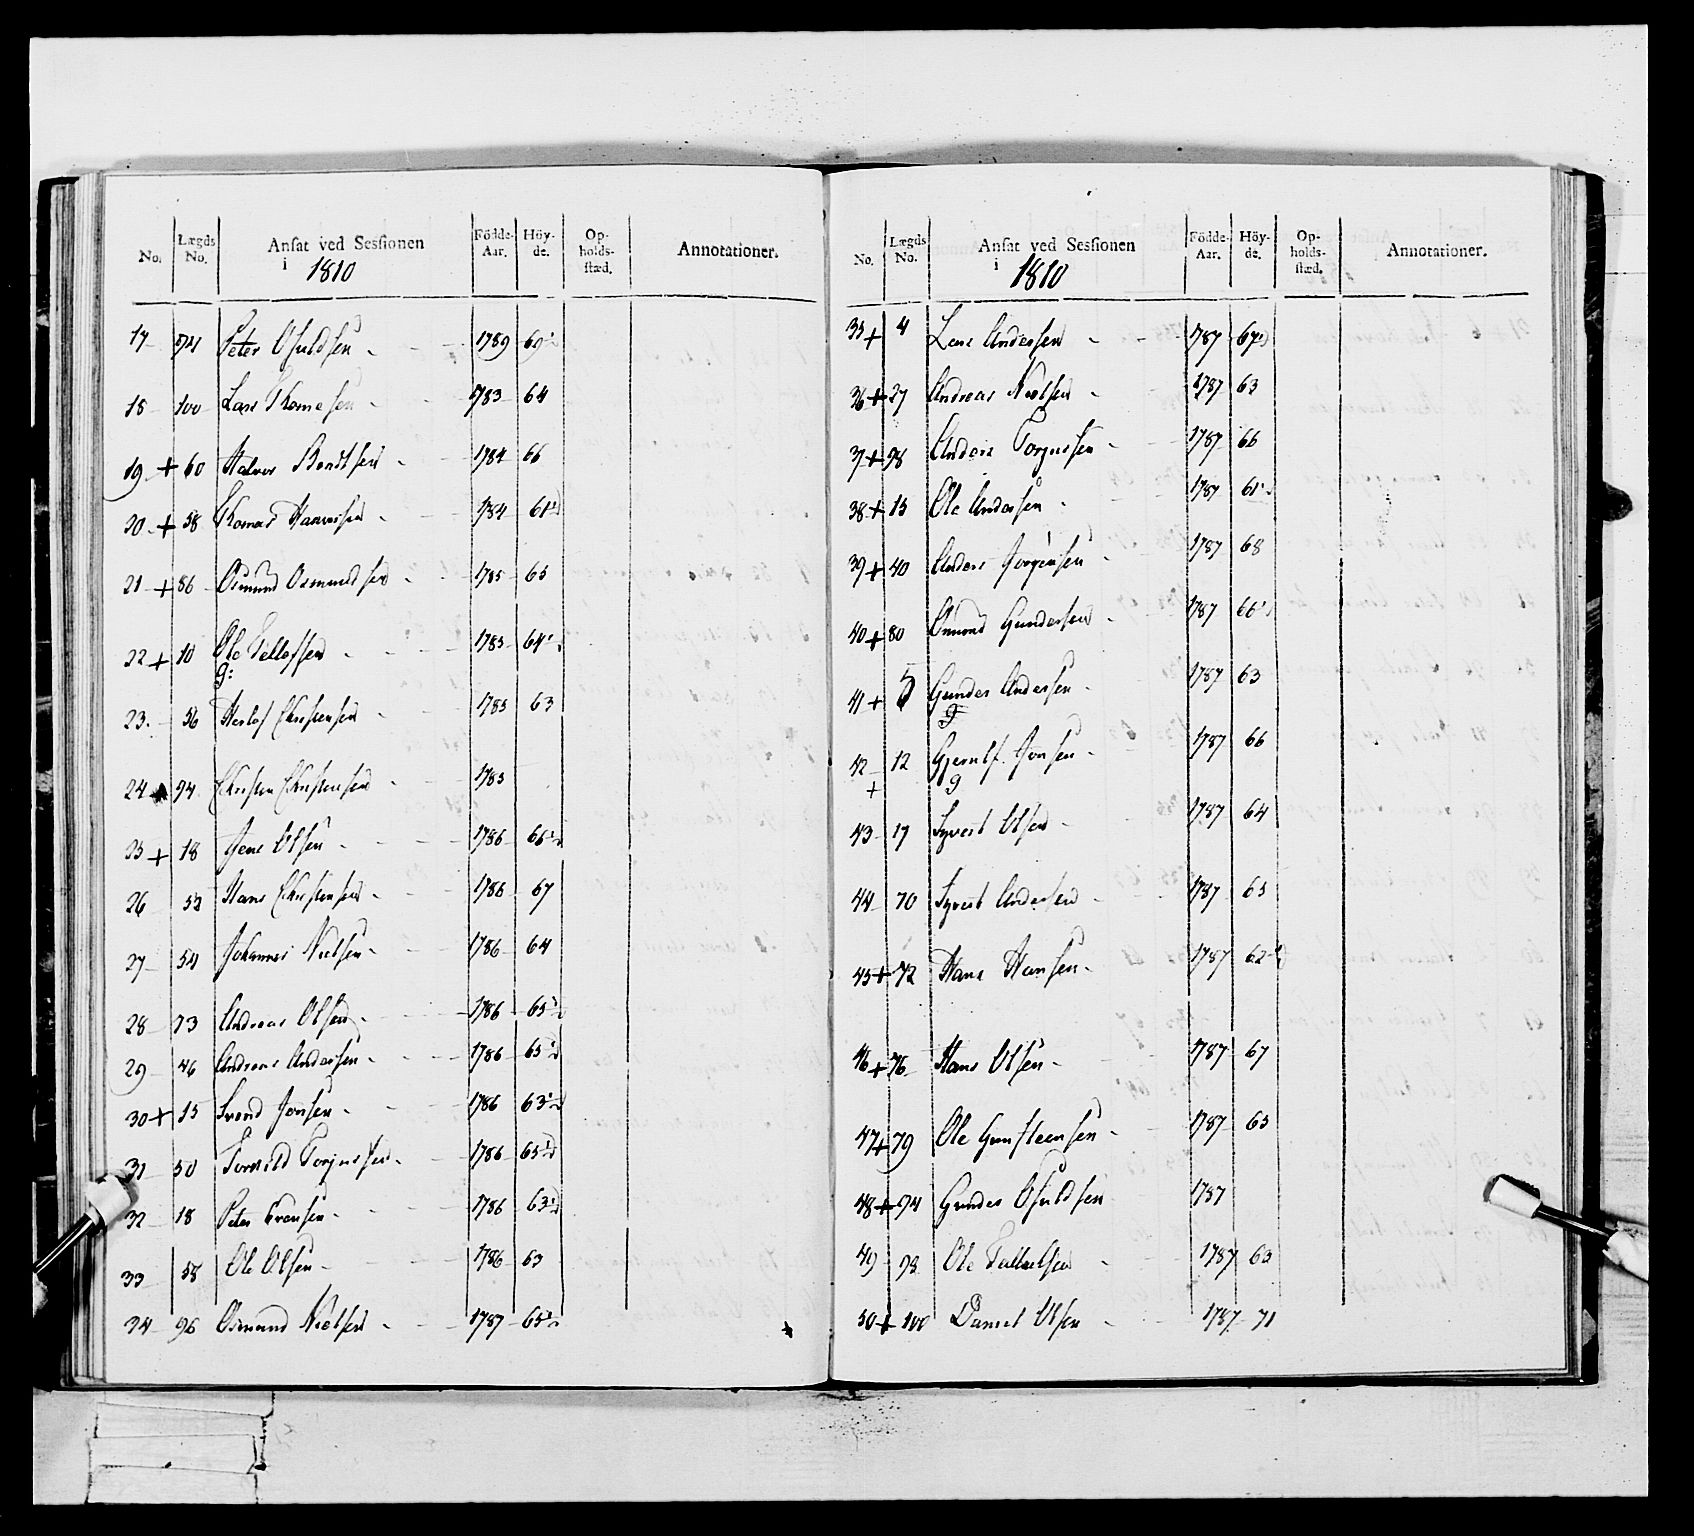 No. Lægds No. Ansat ved Sessionen i 1810 Födde-Aar. Höy-de. Op-holds-stæd. Annotationer.
17 74 Peter Osuldsen 1789 69
18 100 Lars Thomesen 1783 64
19 + 60 Halvor Bentsen 1784 66
20 + 58 Thomas 1784 61½
21 + 86 Osmund Osmundsen 1785 65
22 + 10 Ole Tellefsen 1785 64½
g:
23 56 Herlof Christensen 1785 63
24 94 Christen Christensen 1785
25 + 18 Jens Olsen 1786 66½
26 53 Hans Christensen 1786 67
27 54 Johannes Nielsen 1786 64
28 73 Andreas Olsen 1786 65½
29 46 Andreas Andersen 1786 65½
30 + 15 Svend Jonsen 1786 63½
31 50 Torkild Torjussen 1786 65½
32 18 Peter Evensen 1786 63½
33 58 Ole Olsen 1786 63
34 96 Osmund Nielsen 1787 65½
No. Lægds No. Ansat ved Sessionen i 1810 Födde-Aar. Höy-de. Op-holds-stæd. Annotationer.
35 + 4 Lars Andersen 1787 67½
36 + 27 Andreas Nielsen 1787 63
37 + 98 Anders Torjussen 1787 66
38 + 15 Ole Andersen 1787 61½
39 + 40 Anders Jörgensen 1787 68
40 + 80 Gundersen 1787 66½
41 + 5 Gunder Andersen 1787 63
g
42 + 12 Jonsen 1787 66
g
43 17 Syvert Olsen 1787 64
44 70 Syvert Andersen 1787 65
45 + 72 Hans Hansen 1787 62½
46 + 76 Hans Olsen 1787 67
47 + 79 Ole Gunsteensen 1787 65
48 + 94 Gunder Osuldsen 1787
49 98 Ole 1787 63
50 + 100 Daniel Olsen 1787 71